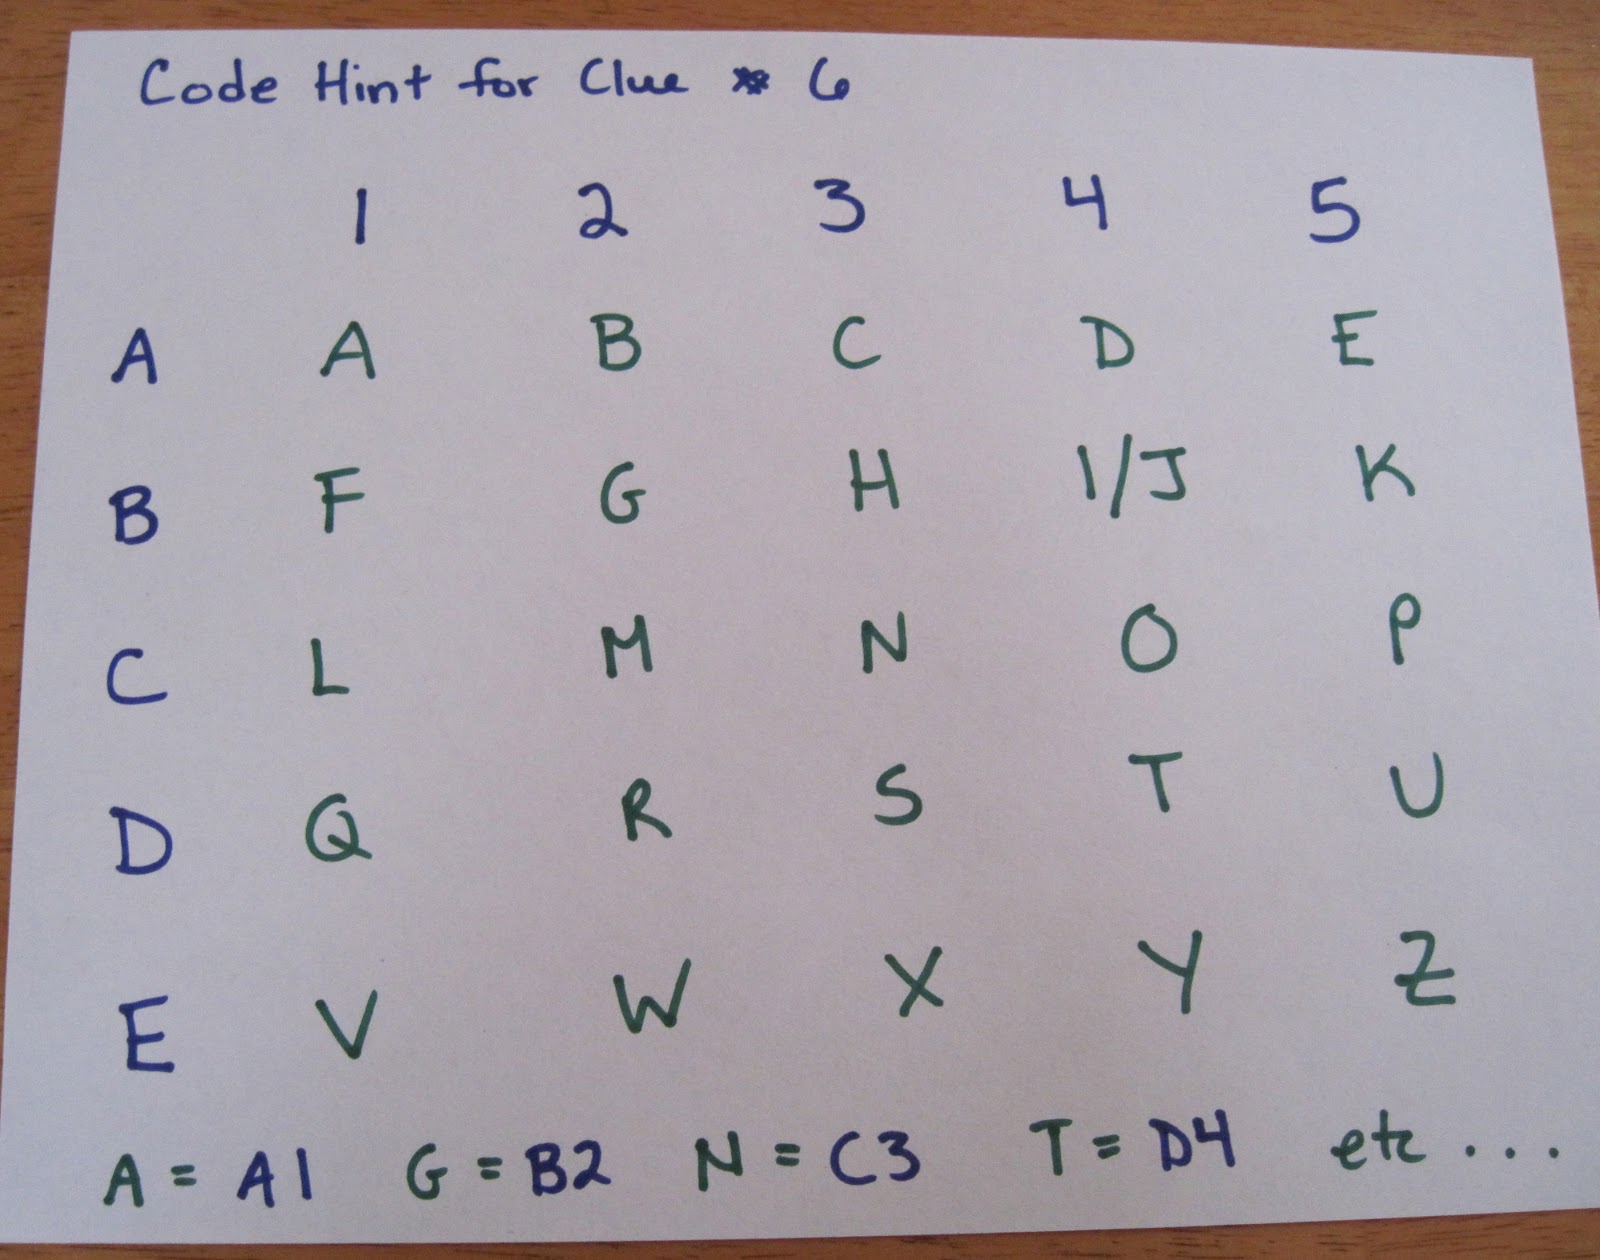 Code Hint for Clue * 6
1 2 3 4 5
A A B C D E
B F G H I/J K
C L M N O P
D Q R S T U
E V W X Y Z
A = A1 G = B2 N = C3 T = D4 etc ....